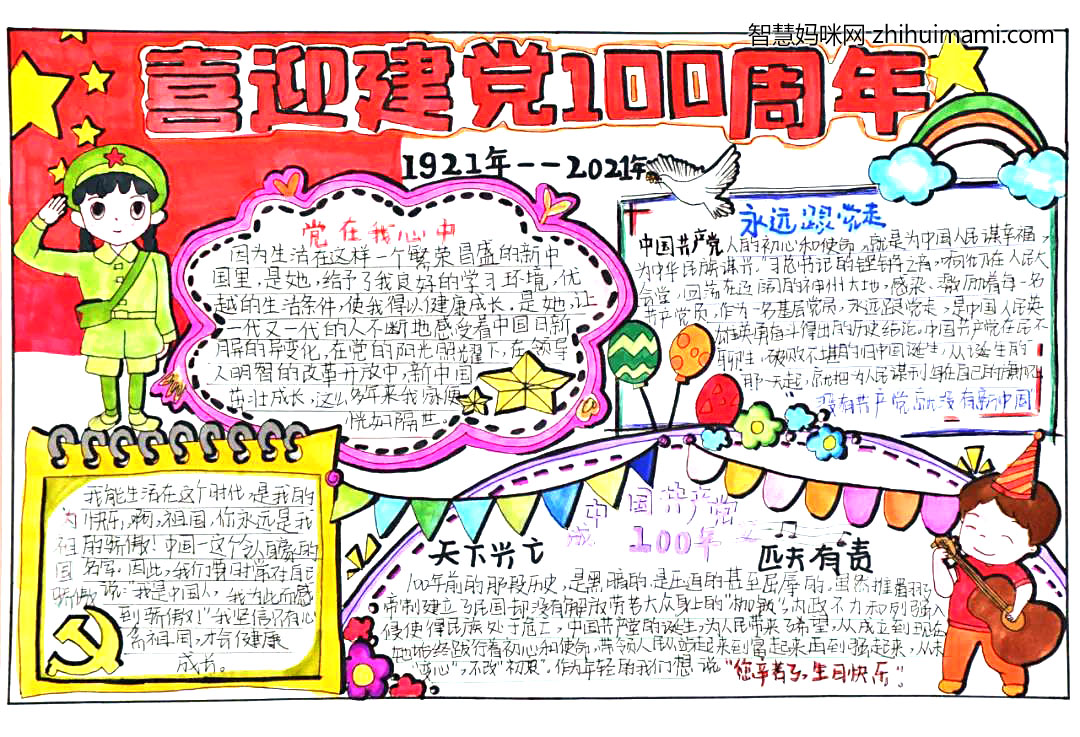 智慧妈咪网 zhihuimami.com
喜迎建党100周年
1921年--2021年
党在我心中
因为生活在这样一个繁荣昌盛的新中
国里,是她,给予了我良好的学习环境,优
越的生活条件,使我得以健康成长。是她,让
一代又一代的人不断地感受着中国日新
月异的变化,在党的阳光照耀下,在领导
人明智的改革开放中,新中国
茁壮成长,这么多年来我仿佛
恍如隔世。
永远跟党走
中国共产党人的初心和使命,就是为中国人民谋幸福,
为中华民族谋兴。习总书记的铿锵之音,响彻在人民大
会堂,回荡在辽阔的神州大地,感染、激励着每一名
共产党员,作为一名基层党员,永远跟党走,是中国人民英
奋斗得出的历史结论。中国共产党在民不
聊生,破败不堪的旧中国诞生,从诞生的
那一天起,就把为人民谋利益在自己的旗帜
没有共产党就没有新中国
我能生活在这个时代,是我的
快乐,啊,祖国,你永远是我
的骄傲!中国一这个
名字。因此,我们要
说:"我是中国人,我为此而感
到骄傲!"我坚信只有心
系祖国,才会健康
成长。
中国共产党
成立100年
天下兴亡 匹夫有责
100年前的那段历史,是黑暗的,是压迫的甚至屈辱的。虽然推翻
帝制建立了民国却没有解放劳苦大众身上的"枷锁"。内政不力和列强入
侵使得民族处于危亡,中国共产党的诞生,为人民带来了希望,从成立到现在
她始终践行着初心和使命,带领人民站起来到富起来再到强起来,从未
"变心",不改"初衷"。作为年轻的我们想说"您辛苦了,生日快乐"。